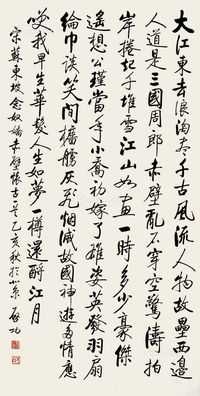 大江東去浪淘尽千古風流人物故壘西邊
人道是三國周郎赤壁亂石穿空驚濤拍
岸捲起千堆雪江山如畫一時多少豪傑
遙想公瑾當年小喬初嫁了雄姿英發羽扇
綸巾談笑間檣艣灰飛煙滅故國神遊多情應
笑我早生華髮人生如夢一樽還酹江月
宋蘇東坡念奴嬌赤壁懷古 乙亥秋於北京 啟功